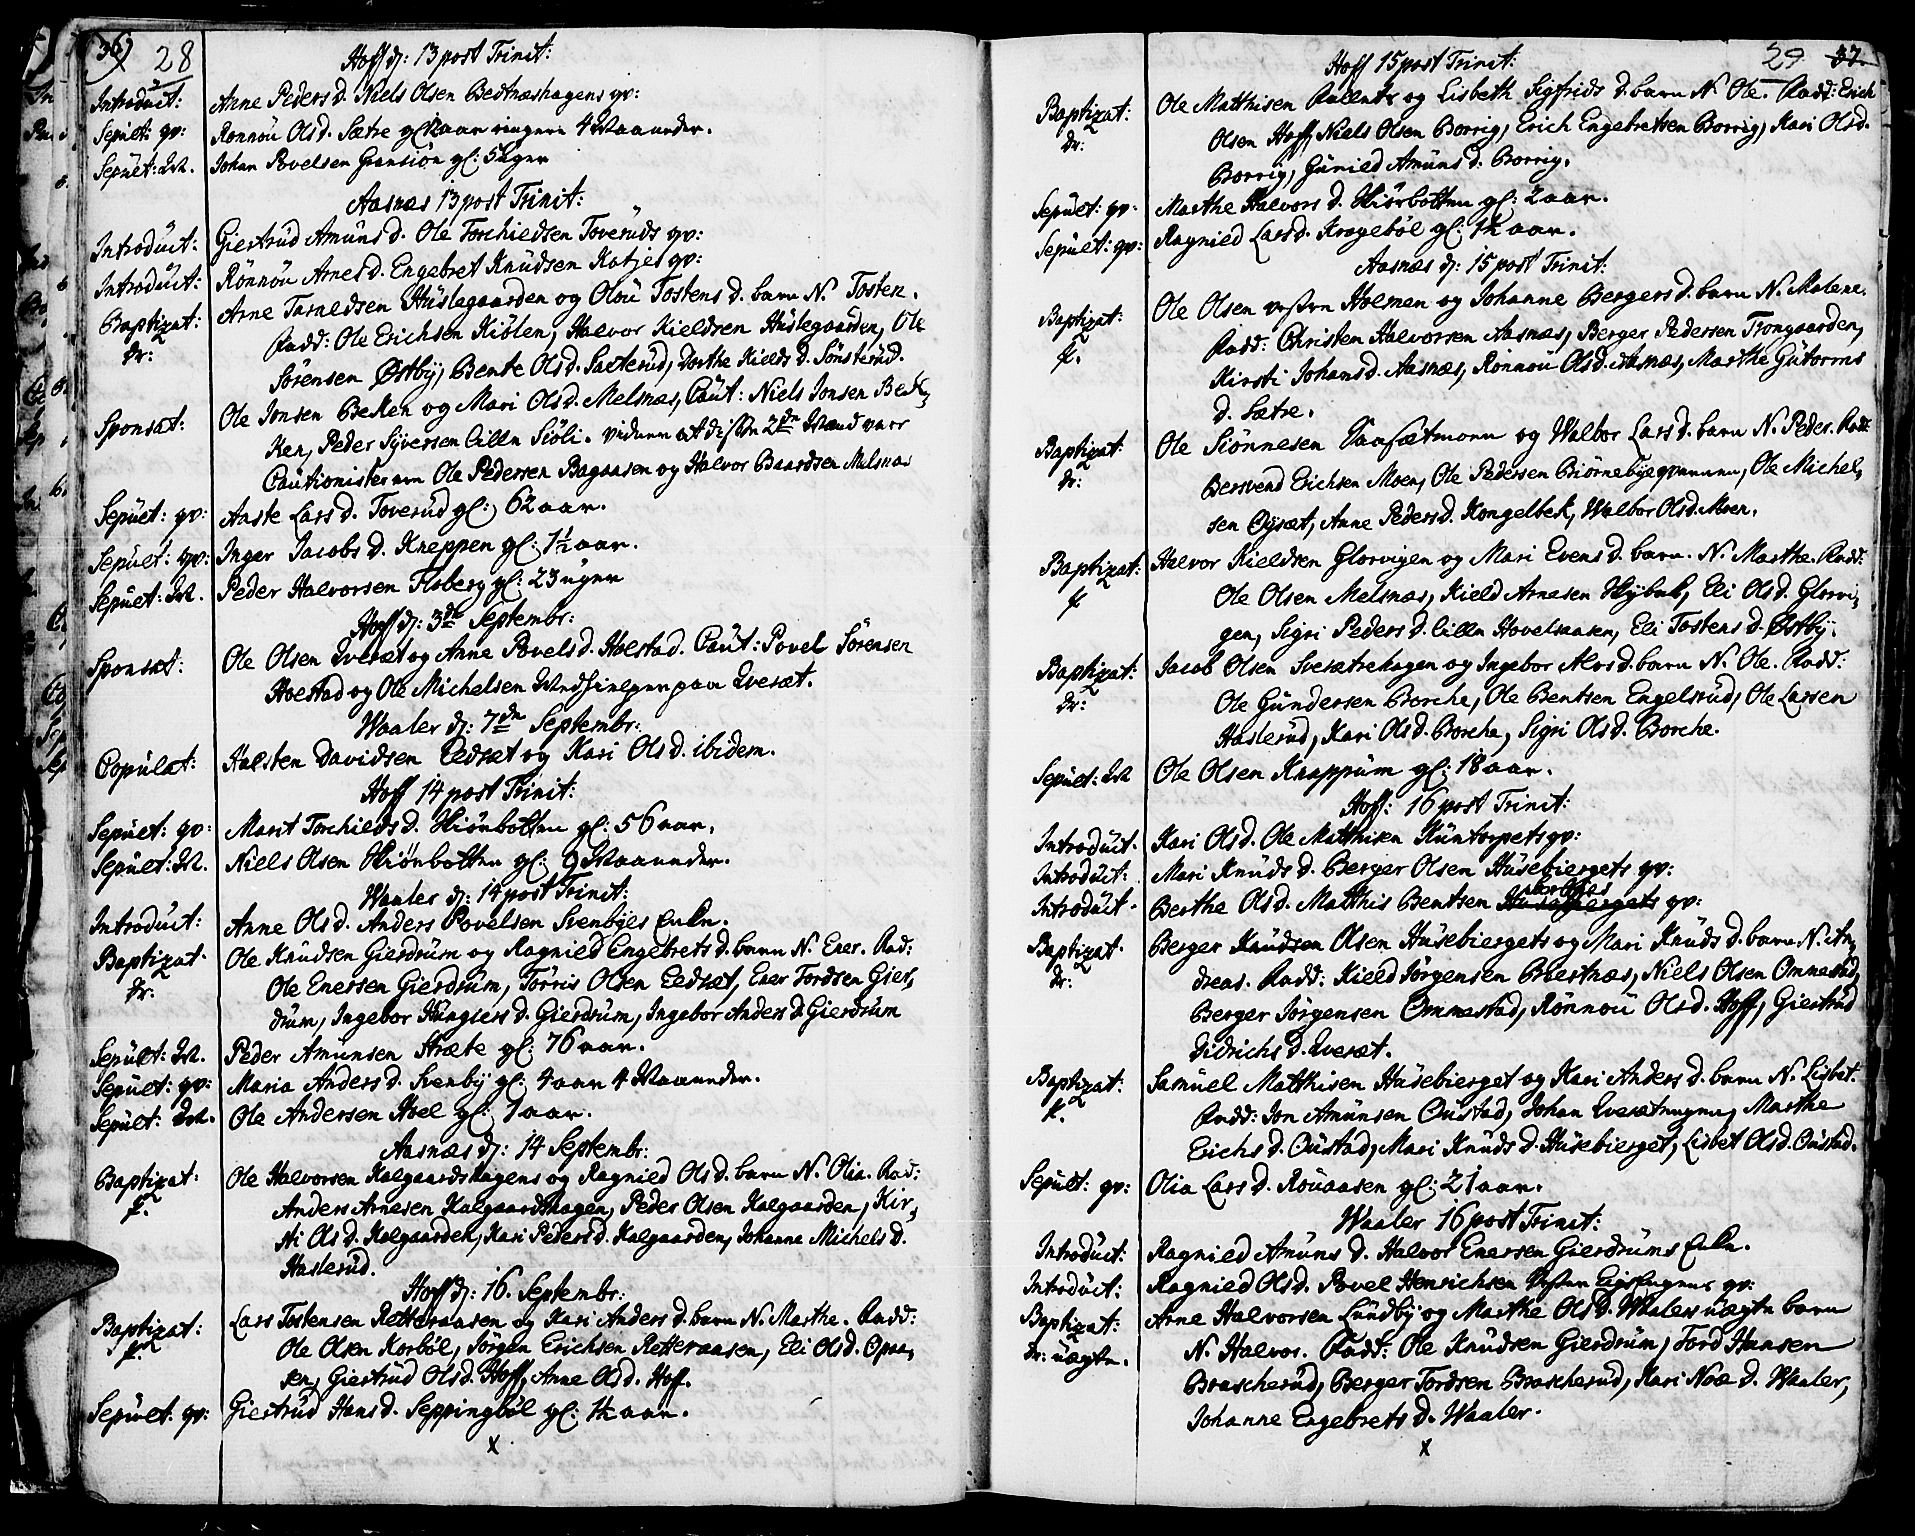 36) 28
Hoff d: 13 post Trinit:
Introduct: Anne Peders d. Niels Olsen Bednæshagens qv:
Sepult: qv: Ronnou Olsd. Sætre gl: aar ringere 4 Maaneder.
Sepult: M. Johan Povelsen Gransiön gl: 5 uger
Aasnæs 13 post Trinit:
Introduct: Giertrud Amunsd. Ole Torchieldsen Toveruds qv:
Introduct: Rönnou Arnesd. Engebret Knudsen Kotjes qv:
Baptizat: Arne Tarneldsen Huslegaarden og Olou Tostens d. barn N. Tosten.
dr: Fadd: Ole Erichsen Kiölen, Halvor Kieldsen Huslegaarden, Ole
Sörensen Østby, Bente Olsd. Sæterud, Dorthe Kields d. Sönsterud.
Sponsat: Ole Jonsen Bekken og Mari Olsd. Melsnæs, Caut: Niels Jonsen Bek-
ken, Peder Syversen lille Siöli. videre at disse 2de Mænd vare
Cautionister Ole Pedersen Bagaasen og Halvor Baardsen Melsnæs
Sepult: qv: Aaste Lars d. Toverud gl: 62 aar.
Sepult: qv: Inger Jacobs d. Kneppen gl: 1½ aar.
Sepult: M. Peder Halvorsen Flisberg gl: 23 uger
Hoff d: 3de Septembr:
Sponsat: Ole Olsen Qveset og Anne Povelsd. Holstad. Caut: Povel Sörensen
Holstad og Ole Michelsen paa Qveset.
Waaler d: 7de Septembr:
Copulat: Halsten Davidsen Eedset og Kari Olsd. ibidem.
Hoff 14 post Trinit:
Sepult: qv: Marit Torchields d. Skiönbotten gl: 56 aar.
Sepult: M. Niels Olsen Skiönbotten gl: 9 Maaneder.
Waaler d: 14 post Trinit:
Introduct: Anne Olsd. Anders Povelsen Svenbyes Enke.
Baptizat. Ole Knudsen Gierdrum og Ragnied Engebrets d. barn N. Ener. Fad:
dr: Ole Enersen Gierdrum, Törris Olsen Eedset, Ener Tordsen Gier-
drum, Ingebor Hungiers d. Gierdrum, Ingebor Anders d. Gierdrum
Sepult: M. Peder Amunsen Stræte gl: 76 aar.
Sepult: qv: Maria Anders d. Svenby gl: 4 aar 4 Maaneder.
Sepult: M. Ole Andersen Hoel gl: 1 aar.
Aasnæs d: 14 Septembr:
Baptizat: Ole Halvorsen Kalgaardshagens og Ragnied Olsd. barn N. Olia. Fad:
f. Anders Arnesen Kalgaardshagen, Peder Olsen Kalgaarden, Kir-
sti Olsd. Kalgaarden, Kari Peders d. Kalgaarden, Johanne Michels d.
Haslerud.
Hoff d: 16. Septembr:
Baptizat: Lars Tostensen Retteraasen og Kari Anders d. barn N. Marthe. Fadd:
f. Ole Olsen Korböl, Jörgen Erichsen Retteraasen, Eli Olsd. Opaa-
sen, Giertrud Olsd. Hoff, Anne Olsd. Hoff.
Sepult: qv: Giertrud Hans d. Seppingböl gl: 1½ aar.
x
29 37
Hoff 15 post Trinit:
Baptizat: Ole Matthisen og Lisbeth Sigfrids d. barn N. Ole. Fadd: Erich
dr: Olsen Hoff, Niels Olsen Borrig, Erich Engebretsen Borrig, Kari Olsd.
Borrig, Guried Amuns d. Borrig.
Sepult: qv: Marthe Halvors d. Skiörbotten gl: 2 aar.
Sepult: qv: Ragnied Larsd. Krogeböl gl: 1½ aar.
Aasnæs d: 15 post Trinit:
Baptizat: Ole Olsen vestre Holmen og Johanne Bergers d. barn N. Malene.
f. Fadd: Christen Halvorsen Aasnæs, Berger Pedersen Trongaarden,
Kirsti Johansd. Aasnæs, Rönnou Olsd. Aasnæs, Marthe Gutorms
d. Sætre.
Baptizat: Ole Siönnesen og Walbor Lars d. barn N. Peder. Fadd:
dr: Bersvend Erichsen Moen, Ole Pedersen Biörnebye, Ole Michel-
sen Oyset, Anne Peders d. Kongelbek, Walbor Olsd. Moen.
Baptizat: Halvor Kieldsen Glorvigen og Mari Evens d. barn. N. Marthe. Fadd:
f Ole Olsen Melsnæs, Kield Arnesen Skybak, Eli Olsd. Glorvi-
gen, Sigri Peders d. lille Hovelsaasen, Eli Tostens d. Østby.
Baptizat: Jacob Olsen Svesætrehagen og Ingebor Alvs d. barn N. Ole. Fadd:
dr: Ole Gundersen Borche, Ole Bentsen Engelsrud, Ole Larsen
Haslerud, Kari Olsd. Borche, Sigri Olsd. Borche.
Sepult: M Ole Olsen Knappum gl: 18 aar.
Hoff: 16 post Trinit:
Introduct. Kari Olsd. Ole Matthisen Kuntorpets qv:
Introduct: Mari Knuds d. Berger Olsen Husebiergets qv:
Introduct. Berthe Olsd. Matthis Bentsen Husebiergets qv:
Baptizat. Berger Knudsen Olsen Husebiergets og Mari Knuds d. barn N. An-
dr: dreas. Fadd: Kield Jörgensen Braatnæs, Niels Olsen Ommestad,
Berger Jörgensen Ommestad, Rönnou Olsd. Hoff, Giertrud
Didrichs d. Qveset.
Baptizat: Samuel Matthisen Husebierget og Kari Anders d. barn N. Lisbet.
f. Fadd: Jon Amunsen Oustad, Johan, Marthe
Erichs d. Oustad, Mari Knuds d. Husebierget, Lisbet Olsd. Oustad.
Sepult: qv: Olia Lars d. Rouaasen gl: 21 aar.
Waaler 16 post Trinit:
Introduct: Ragnied Amuns d. Halvor Enersen Gierdrums Enke.
Introduct: Ragnied Olsd. Povel Henrichsen qv:
Baptizat: Arne Halvorsen Lundby og Marthe Olsd. Waalers uægte barn
Dr: uægte. N. Halvor. Fadd: Ole Knudsen Gierdrum, Tord Hansen
Brascherud, Berger Tordsen Brascherud, Kari Noe d. Waaler,
Johanne Engebrets d. Waaler.
x